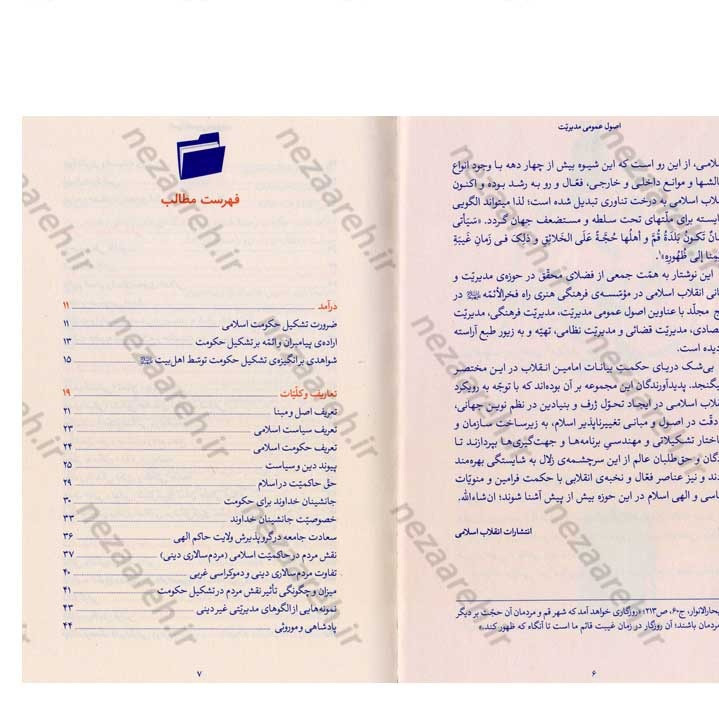 اصول عمومی مدیریّت
سلامی، از این رو است که این شیوه بیش از چهار دهه با وجود انواع
الشها و موانع داخلی و خارجی، فعّال و رو به رشد بوده و اکنون
قلاب اسلامی به درخت تناوری تبدیل شده است؛ لذا میتواند الگویی
ایسته برای ملّتهای تحت سلطه و مستضعف جهان گردد. «سَیَأتی
مانٌ تَکونُ بَلدَةُ قُمَّ و أهلُها حُجَّةً عَلَی الخَلائِقِ و ذلِکَ فی زَمانِ غَیبَةِ
ئِمِنا إلی ظُهُورِهِ»۱.
این نوشتار به همّت جمعی از فضلای محقّق در حوزه‌ی مدیریّت و
بانی انقلاب اسلامی در مؤسّسه‌ی فرهنگی هنری راه فخرالأئمّه در
ج مجلّد با عناوین اصول عمومی مدیریّت، مدیریّت فرهنگی، مدیریّت
صادی، مدیریّت قضائی و مدیریّت نظامی، تهیّه و به زیور طبع آراسته
دیده است.
بی‌شک دریای حکمت بیانات امامین انقلاب در این مختصر
یگنجد. پدیدآورندگان این مجموعه بر آن بوده‌اند که با توجّه به رویکرد
قلاب اسلامی در ایجاد تحوّل ژرف و بنیادین در نظم نوین جهانی،
دقّت در اصول و مبانی تغییرناپذیر اسلام، به زیرساخت سازمان و
ختار تشکیلاتی و مهندسیِ برنامه‌ها و جهت‌گیری‌ها بپردازند تا
دگان و حق‌طلبان عالم از این سرچشمه‌ی زلال به شایستگی بهره‌مند
دند و نیز عناصر فعّال و نخبه‌ی انقلابی با حکمت فرامین و منویّات
اسی و الهی اسلام در این حوزه بیش از پیش آشنا شوند؛ ان‌شاءالله.
انتشارات انقلاب اسلامی
بحارالانوار، ج۶۰، ص۲۱۳؛ «روزگاری خواهد آمد که شهر قم و مردمان آن حجّت بر دیگر
مردمان باشند؛ آن روزگار در زمان غیبت قائم ما است تا آنگاه که ظهور کند.»
۶
فهرست مطالب
درآمد ۱۱
ضرورت تشکیل حکومت اسلامی ۱۱
اراده‌ی پیامبران و ائمّه بر تشکیل حکومت ۱۳
شواهدی بر انگیزه‌ی تشکیل حکومت توسّط اهل‌بیت ۱۵
تعاریف و کلّیّات ۱۹
تعریف اصل و مبنا ۲۱
تعریف سیاست اسلامی ۲۳
تعریف حکومت اسلامی ۲۴
پیوند دین و سیاست ۲۵
حقّ حاکمیّت در اسلام ۲۹
جانشینان خداوند برای حکومت ۳۰
خصوصیّت جانشینان خداوند ۳۳
سعادت جامعه در گرو پذیرش ولایت حاکم الهی ۳۶
نقش مردم در حاکمیّت اسلامی (مردم سالاری دینی) ۳۷
تفاوت مردم سالاری دینی و دموکراسی غربی ۴۰
میزان و چگونگی تأثیر نقش مردم در تشکیل حکومت ۴۱
نمونه‌هایی از الگوهای مدیریّتی غیر دینی ۴۳
پادشاهی و موروثی ۴۴
۷
nezaareh.ir